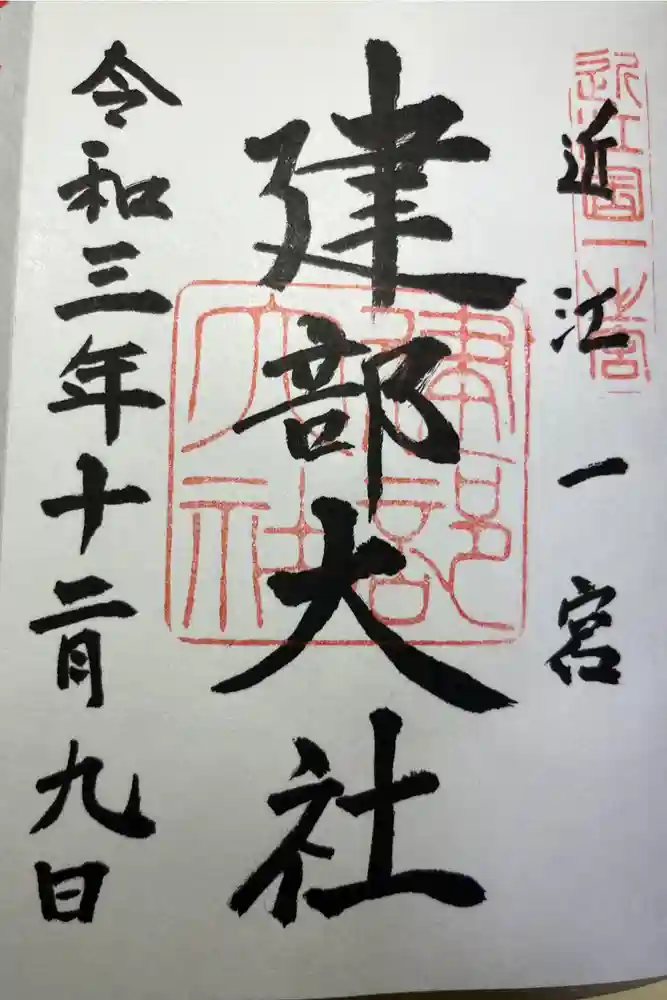 近江一宮
近江国一之宮
建部大社
建部大社
令和三年十二月九日